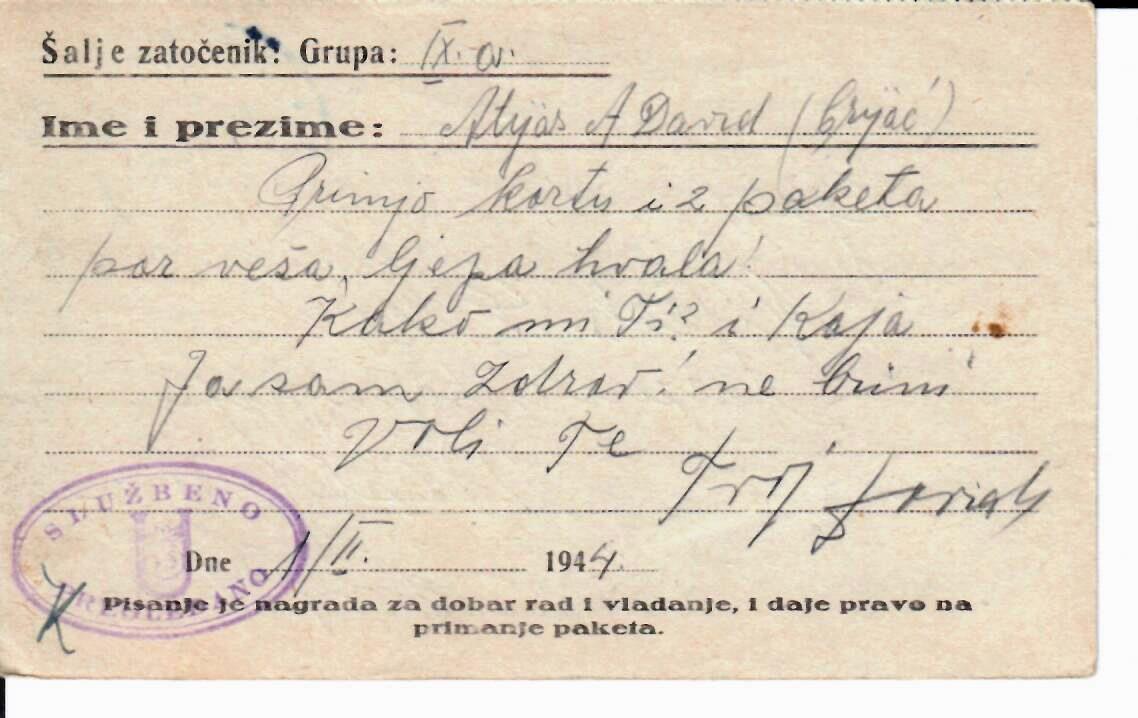 Šalje zatočenik: Grupa: IX. a.
Ime i prezime: Atijas A David (Brijač)
Primjo kartu i 2 paketa
par veša, ljepa hvala!
Kako mi Ti? i Kaja
Ja sam zdrav! ne brini
Voli Te
Tvoj David
SLUŽBENO
PREGLEDANO
Dne 1/II. 1944.
K
Pisanje je nagrada za dobar rad i vladanje, i daje pravo na
primanje paketa.